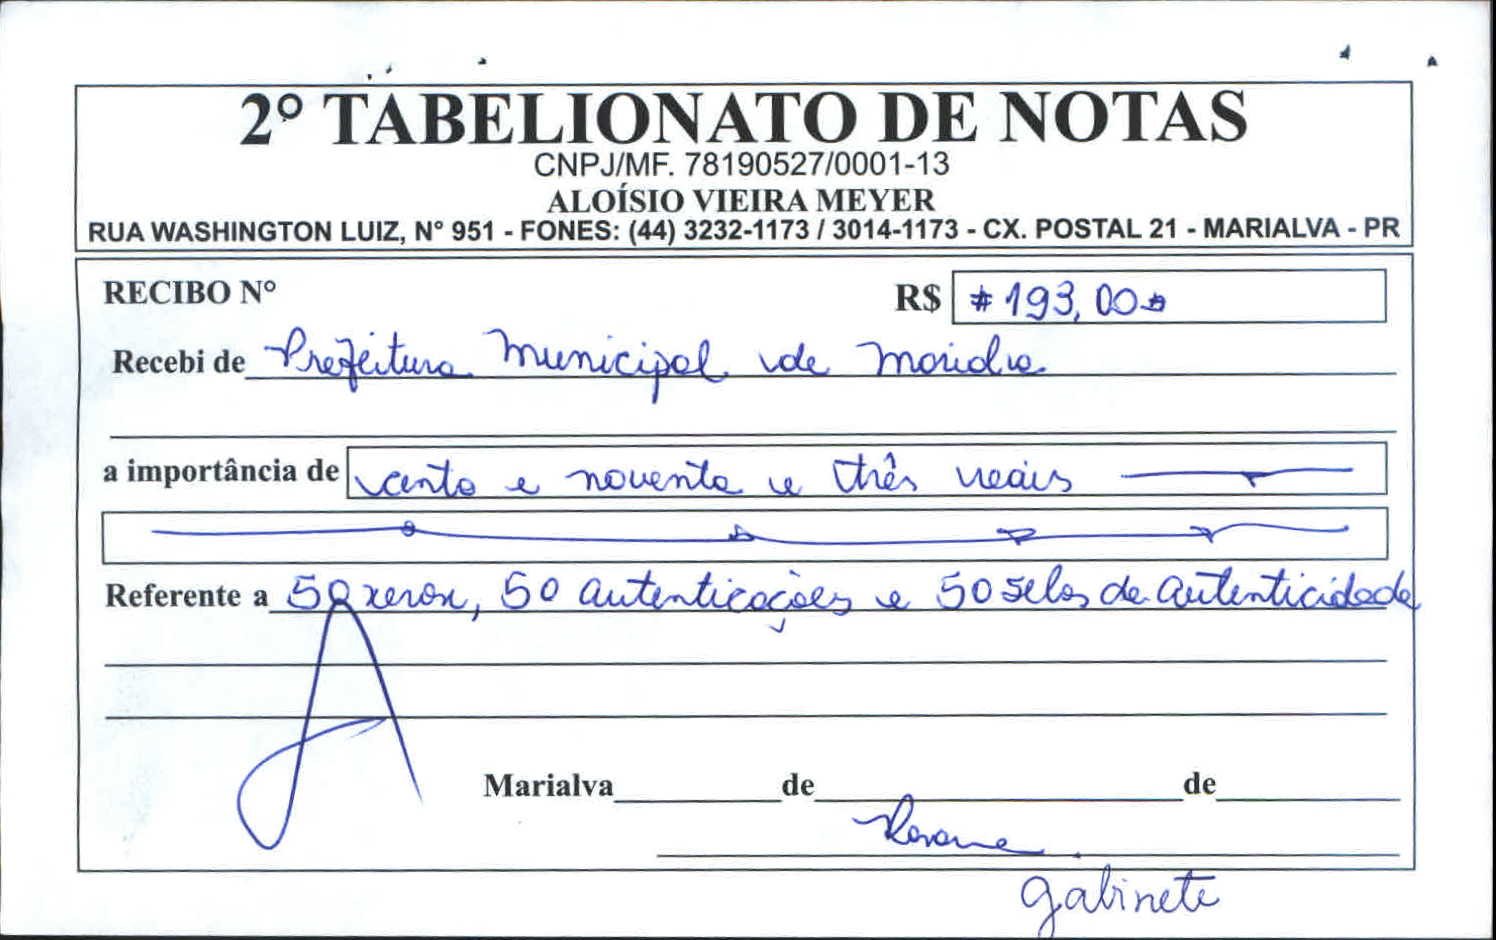 2º TABELIONATO DE NOTAS
CNPJ/MF. 78190527/0001-13
ALOÍSIO VIEIRA MEYER
RUA WASHINGTON LUIZ, Nº 951 - FONES: (44) 3232-1173 / 3014-1173 - CX. POSTAL 21 - MARIALVA - PR
RECIBO Nº R$ # 193,00
Recebi de Prefeitura Municipal de
a importância de cento e noventa e três reais
Referente a 50 xerox, 50 autenticações e 50 selos de autenticidade
Marialva de de
Gabinete